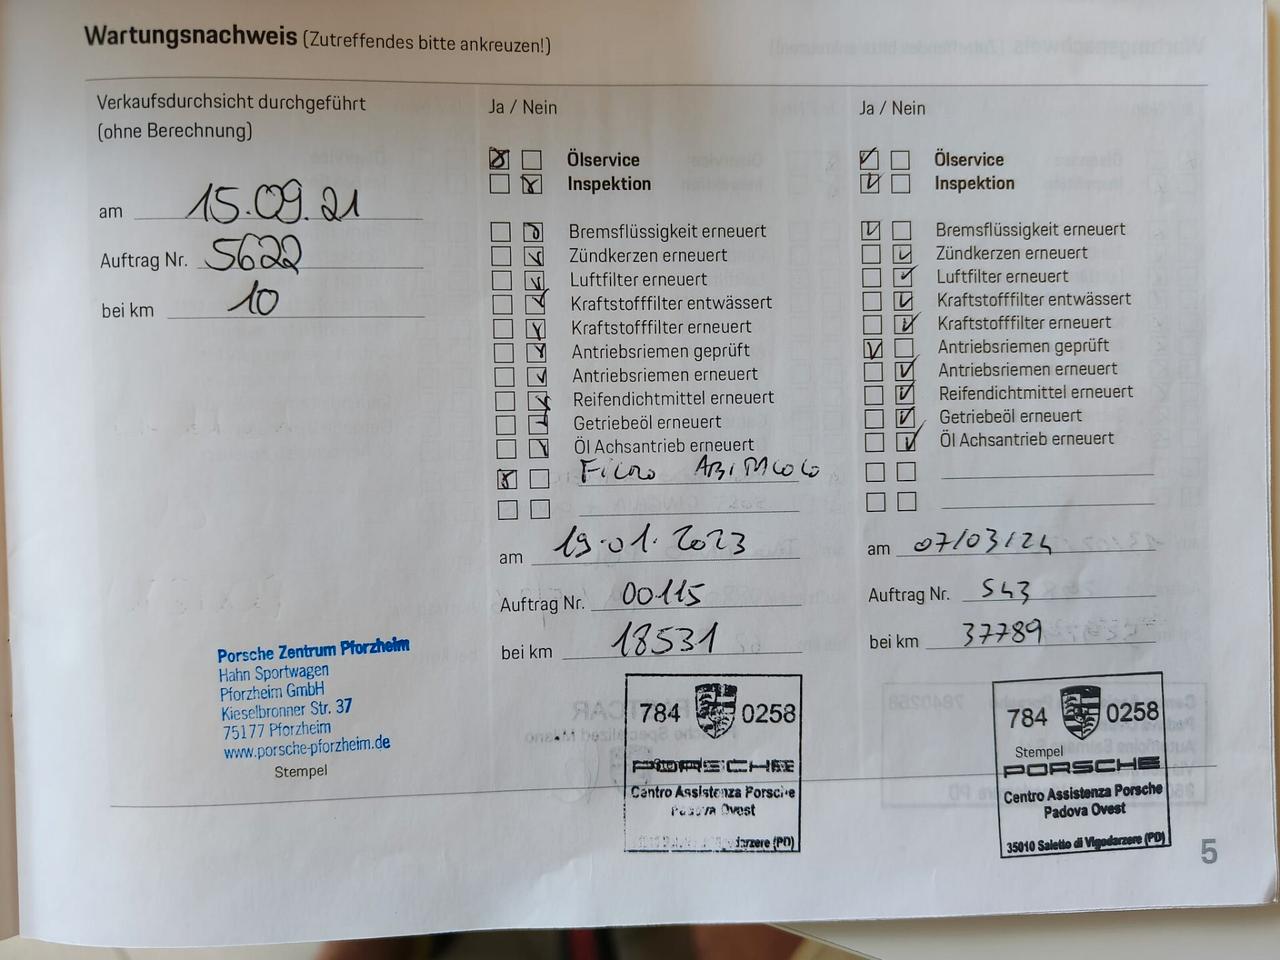 Wartungsnachweis (Zutreffendes bitte ankreuzen!)
Verkaufsdurchsicht durchgeführt
(ohne Berechnung)
am 15.09.21
Auftrag Nr. 5622
bei km 10
Porsche Zentrum Pforzheim
Hahn Sportwagen
Pforzheim GmbH
Kieselbronner Str. 37
75177 Pforzheim
www.porsche-pforzheim.de
Stempel
Ja / Nein
Ölservice
Inspektion
Bremsflüssigkeit erneuert
Zündkerzen erneuert
Luftfilter erneuert
Kraftstofffilter entwässert
Kraftstofffilter erneuert
Antriebsriemen geprüft
Antriebsriemen erneuert
Reifendichtmittel erneuert
Getriebeöl erneuert
Öl Achsantrieb erneuert
am 19.01.2023
Auftrag Nr. 00115
bei km 18531
784 0258
PORSCHE
Centro Assistenza Porsche
Padova Ovest
(PD)
Ja / Nein
Ölservice
Inspektion
Bremsflüssigkeit erneuert
Zündkerzen erneuert
Luftfilter erneuert
Kraftstofffilter entwässert
Kraftstofffilter erneuert
Antriebsriemen geprüft
Antriebsriemen erneuert
Reifendichtmittel erneuert
Getriebeöl erneuert
Öl Achsantrieb erneuert
am 07/03/24
Auftrag Nr. 543
bei km 37789
784 0258
Stempel
PORSCHE
Centro Assistenza Porsche
Padova Ovest
35010 Saletto di Vigodarzere (PD)
5